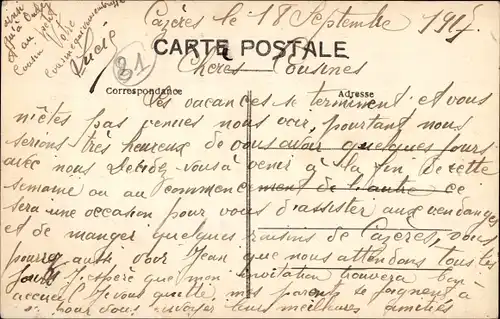 Cazères le 18 Septembre 1917
CARTE POSTALE
Chères Cousines
Correspondance
Adresse
Les vacances se terminent et vous
n'êtes pas venues nous voir, pourtant nous
serions très heureux de vous avoir quelques jours
avec nous Décidez vous à venir à la fin de cette
semaine ou au commencement de l'autre ce
sera une occasion pour vous d'assister aux vendanges
et de manger quelques raisins de Cazères, vous
pourrez aussi voir Jean que nous attendons tous les
jours J'espère que mon invitation trouvera bon
accueil Je vous quitte, mes parents se joignent à
pour vous envoyer leurs meilleures amitiés
Lucie
81